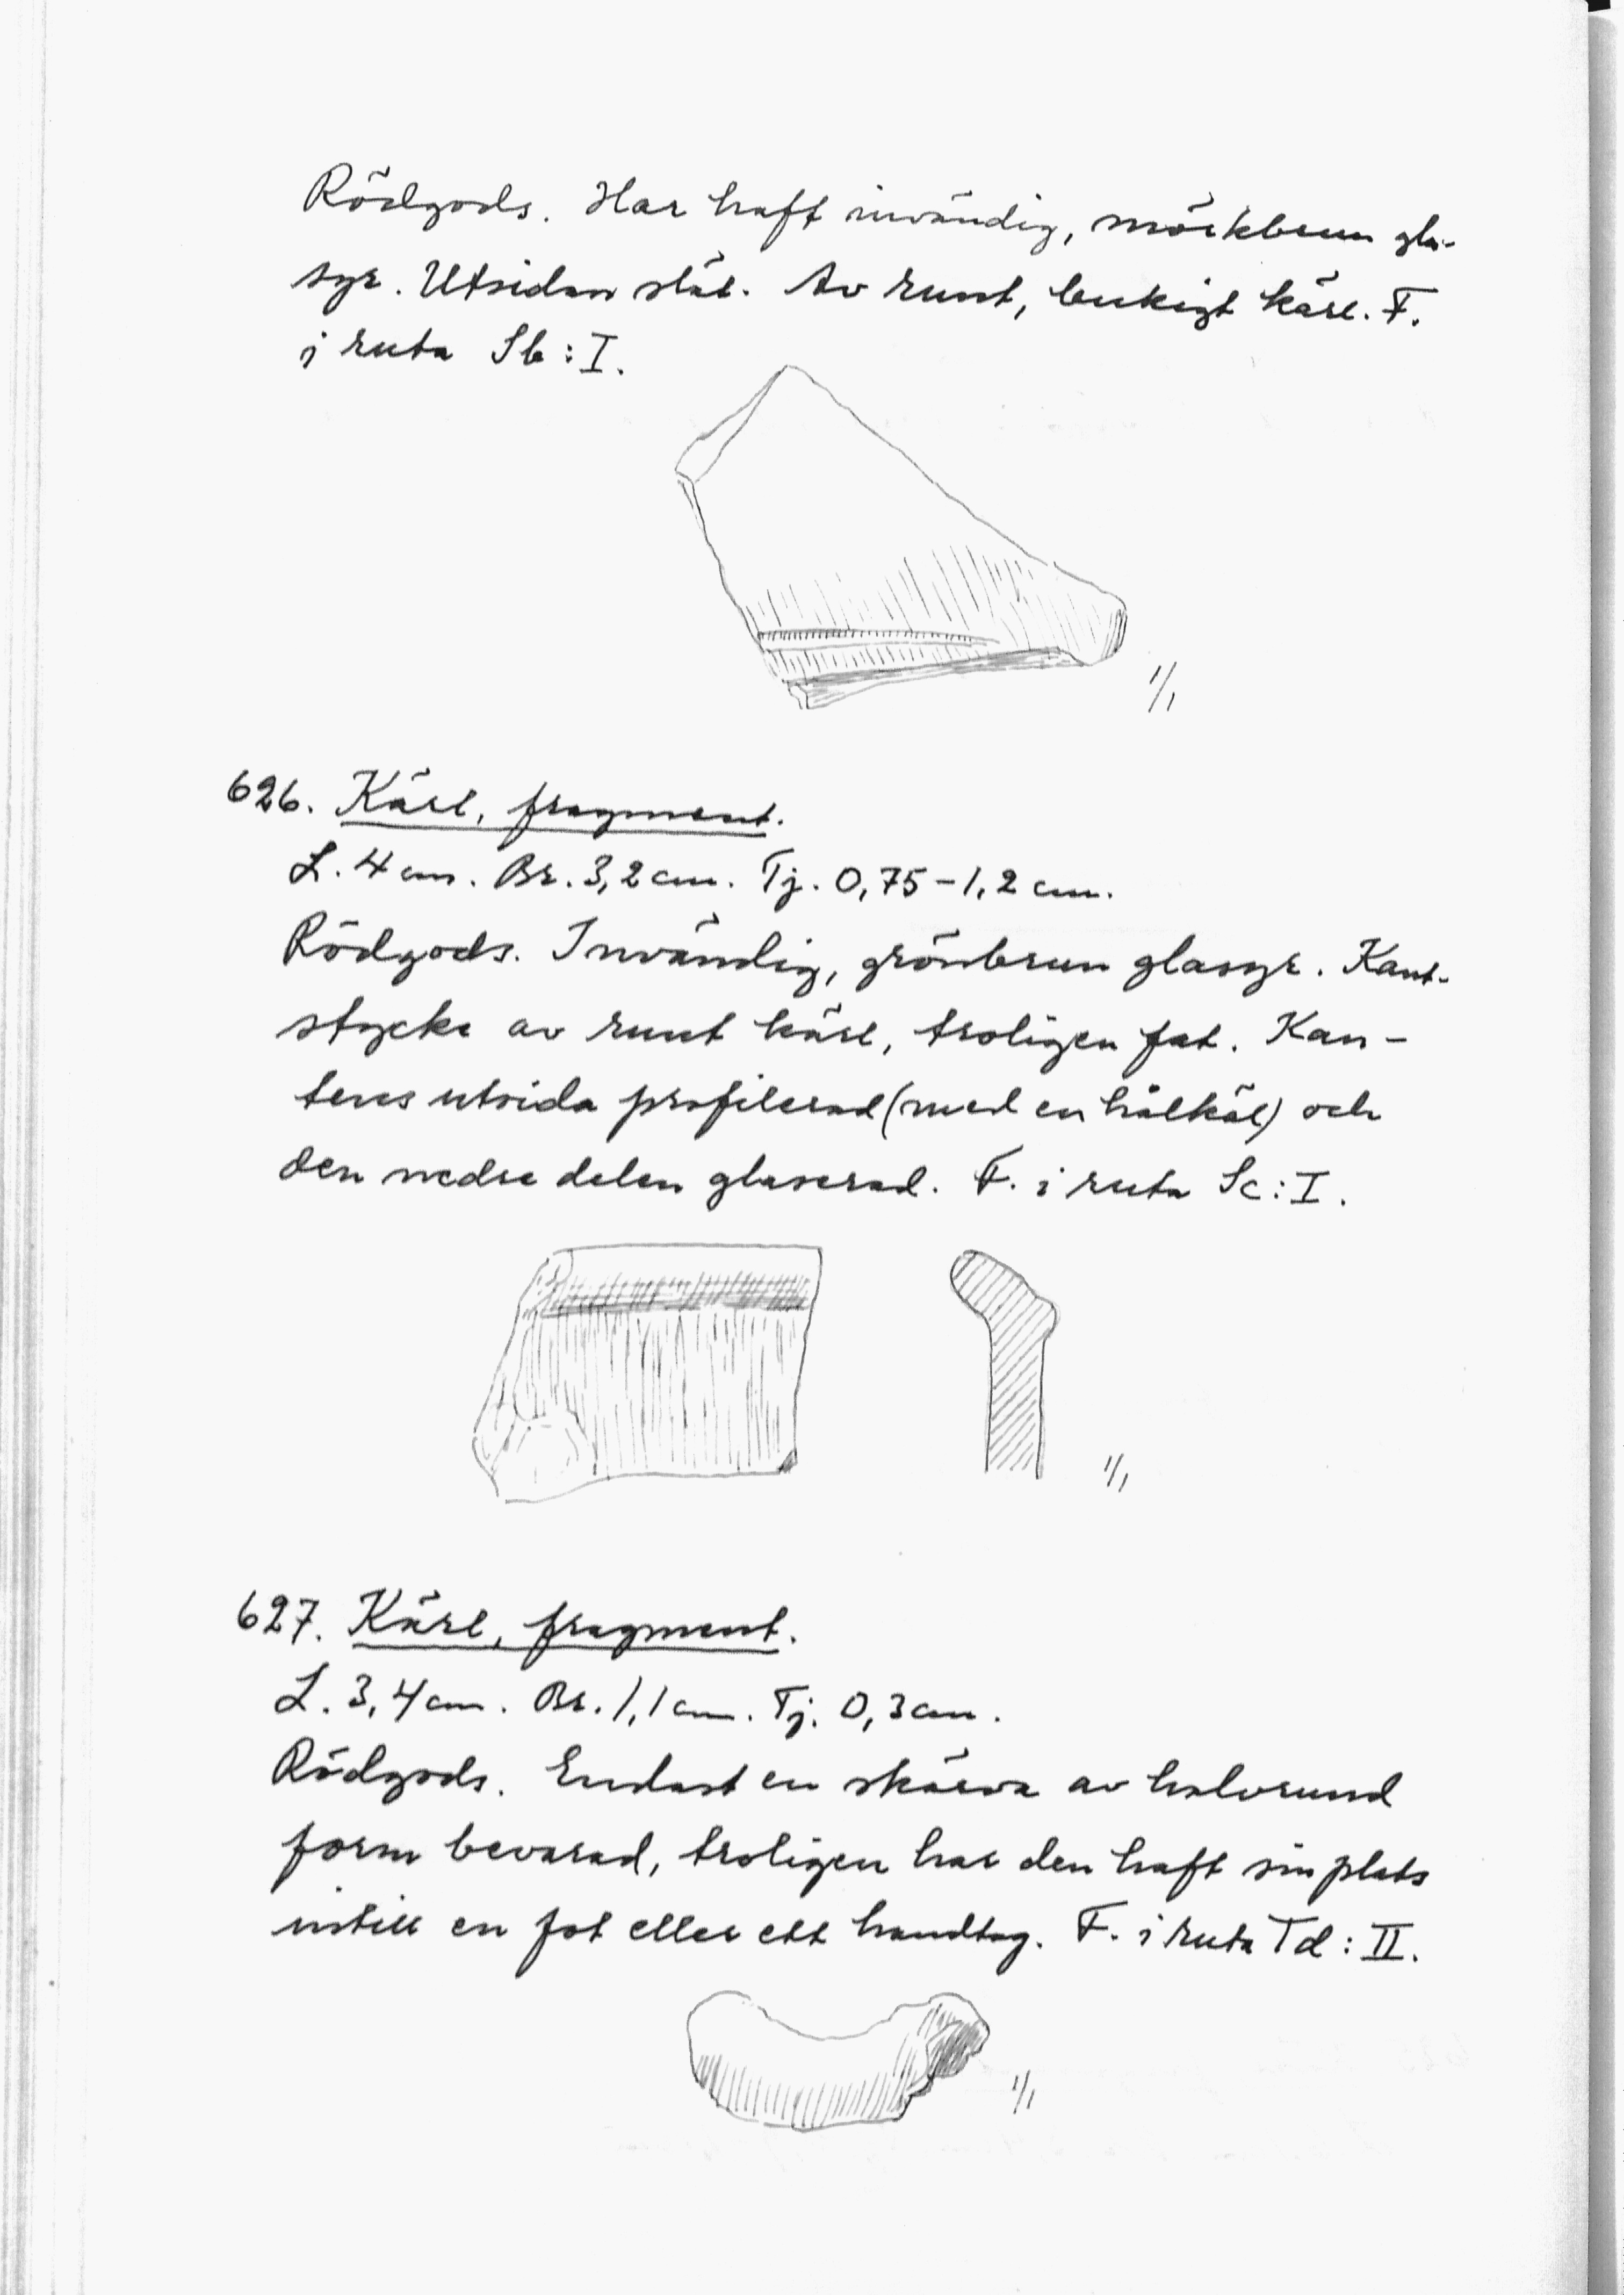 Rödgods. Har haft invändig, mörkbrun gla-
syr. Utsidan slät. Av runt, bukigt kärl. F.
i ruta Sb: I.
1/1
626. Kärl, fragment.
L. 4 cm. Br. 3,2 cm. Tj. 0,75-1,2 cm.
Rödgods. Invändig, grönbrun glasyr. Kant-
stycke av runt kärl, troligen fat. Kan-
tens utsida profilerad (med en hålkäl) och
den nedre delen glaserad. F. i ruta Sc: I.
1/1
627. Kärl, fragment.
L. 3,4 cm. Br. 1,1 cm. Tj. 0,3 cm.
Rödgods. Endast en skärva av halvrund
form bevarad, troligen har den haft sin plats
intill en fot eller ett handtag. F. i ruta Td: II.
1/1